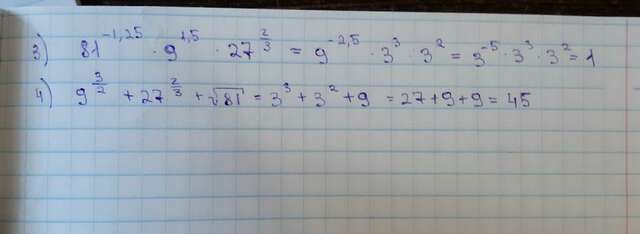 3) 81^{-1,25} · 9^{1,5} · 27^{\frac{2}{3}} = 9^{-2,5} · 3^3 · 3^2 = 3^{-5} · 3^3 · 3^2 = 1
4) 9^{\frac{3}{2}} + 27^{\frac{2}{3}} + \sqrt{81} = 3^3 + 3^2 + 9 = 27 + 9 + 9 = 45